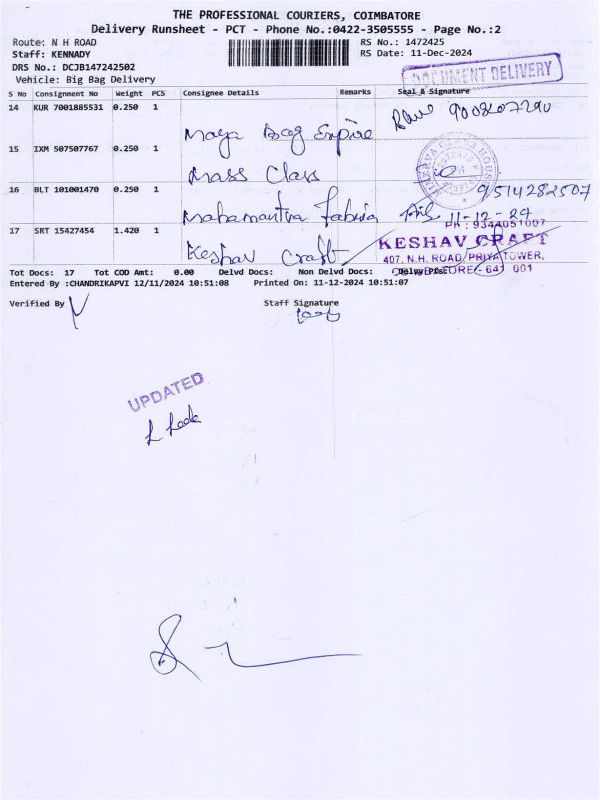 THE PROFESSIONAL COURIERS, COIMBATORE
Delivery Runsheet - PCT - Phone No.:0422-3505555 - Page No.:2
Route: N H ROAD RS No.: 1472425
Staff: KENNADY RS Date: 11-Dec-2024
DRS No.: DCJB147242502
Vehicle: Big Bag Delivery
DOCUMENT DELIVERY
S No Consignment No Weight PCS Consignee Details Remarks Seal & Signature
14 KUR 7001885531 0.250 1
Maya Bag Empire
15 IXM 507507767 0.250 1
Mass Class
16 BLT 101001470 0.250 1 9514282507
Mahamantra 11-12-24
PH : 9344051007
17 SRT 15427454 1.420 1
Keshav Craft
KESHAV CRAFT
407, N.H. ROAD, PRIYA TOWER,
COIMBATORE - 641 001
Tot Docs: 17 Tot COD Amt: 0.00 Delvd Docs: Non Delvd Docs: Delvd Pcs:
Entered By :CHANDRIKAPVI 12/11/2024 10:51:08 Printed On: 11-12-2024 10:51:07
Verified By Staff Signature
UPDATED